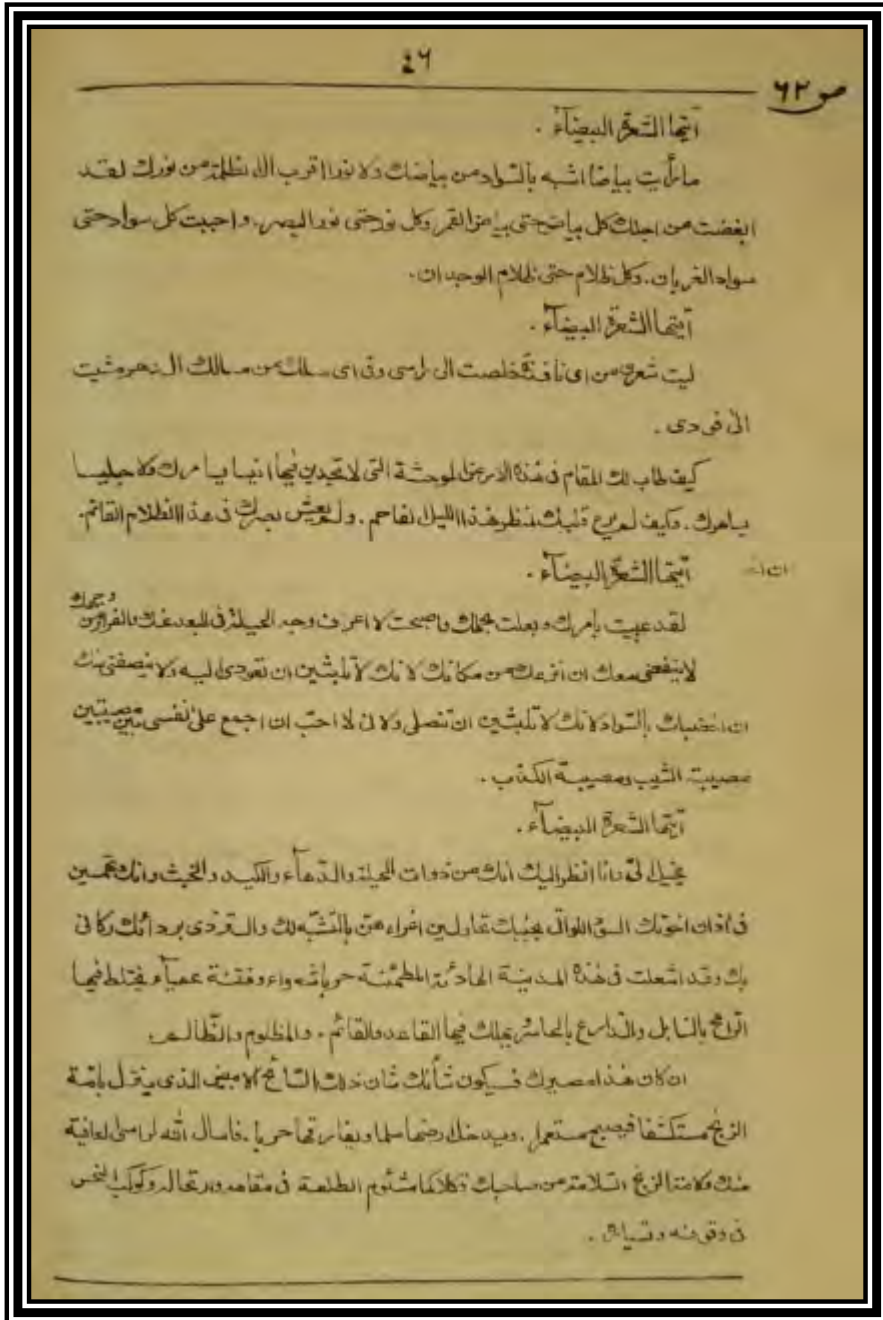 ٤٦
ص ٦٢
أيتها الشعرة البيضآء .
ما رأيت بياضا اشبه بالسواد من بياضك ولا نورا اقرب الى الظلمة من نورك لقد
ابغضت من اجلك كل بياض حتى بياض القمر وكل نور حتى نور البصر. واحببت كل سواد حتى
سواد الغربان. وكل ظلام حتى ظلام الوجدان.
أيتها الشعرة البيضآء .
ليت شعرى من اى نافذة خلصت الى راسى وفى اى مسلك من مسالك الدهر مشيت
الى فودى .
كيف طاب لك المقام فى هذه الارض الموحشة التى لا تجدين فيها انيسا يسامرك ولا جليسا
يساهرك . وكيف لم يرع قلبك لمنظر هذا الليل الفاحم . ولم يعش بصرك فى هذا الظلام القاتم.
أيتها الشعرة البيضآء .
لقد عييت بأمرك وبعلت بحملك واصبحت لا اعرف وجه الحيلة فى البعد عنك والفرار من
وجهك
لا ينفعنى معك ان انزعك من مكانك لانك لا تلبثين ان تعودى اليه ولا ينصفنى منك
ان اخضبك بالسواد لانك لا تلبثين ان تنصلى ولانى لا احبّ ان اجمع على نفسى بين مصيبتين
مصيبة الشيب ومصيبة الكذب .
أيتها الشعرة البيضآء .
يخيل الىّ وانا انظر اليك انك من ذوات الحيلة والدهآء والكيد والخبث وانك تهمسين
فى أذان اخوتك السود اللواتى بجنبك تحاولين اغراء هنّ بالتشبّه لك والتردّى بردائك وكانى
بك وقد اشعلت فى هذه المدينة الهادئة المطمئنة حربا شعواء وفتنة عمياء يختلط فيها
الرامح بالنابل والدارع بالحاسر يهلك فيها القاعد والقائم . والمظلوم والظالم
ان كان هذا مصيرك فسيكون شأنك شان ذلك السائح الابيض الذى ينزل بامّة
الزنج مستكشفا فيصبح مستعمر . ويدخل ارضها سلما ويفارقها حربا . فاسال الله لراسى العافية
منك ولامة الزنج السلامة من صاحبك فكلاكما مشئوم الطلعة فى مقامه وارتحاله وكوكب النحس
فى وقوفه وتسياره .